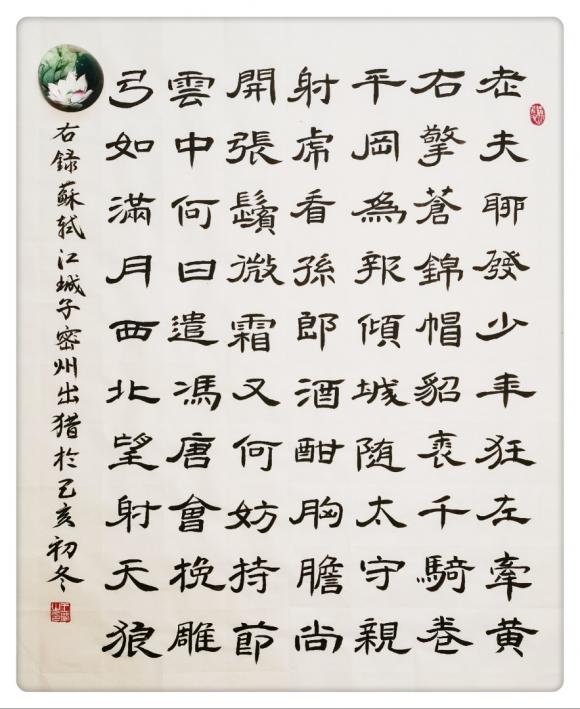 老夫聊發少年狂左牽黃
右擎蒼錦帽貂裘千騎卷
平岡為報傾城隨太守親
射虎看孫郎酒酣胸膽尚
開張鬢微霜又何妨持節
雲中何日遣馮唐會挽雕
弓如滿月西北望射天狼
右録蘇軾江城子密州出猎於己亥初冬